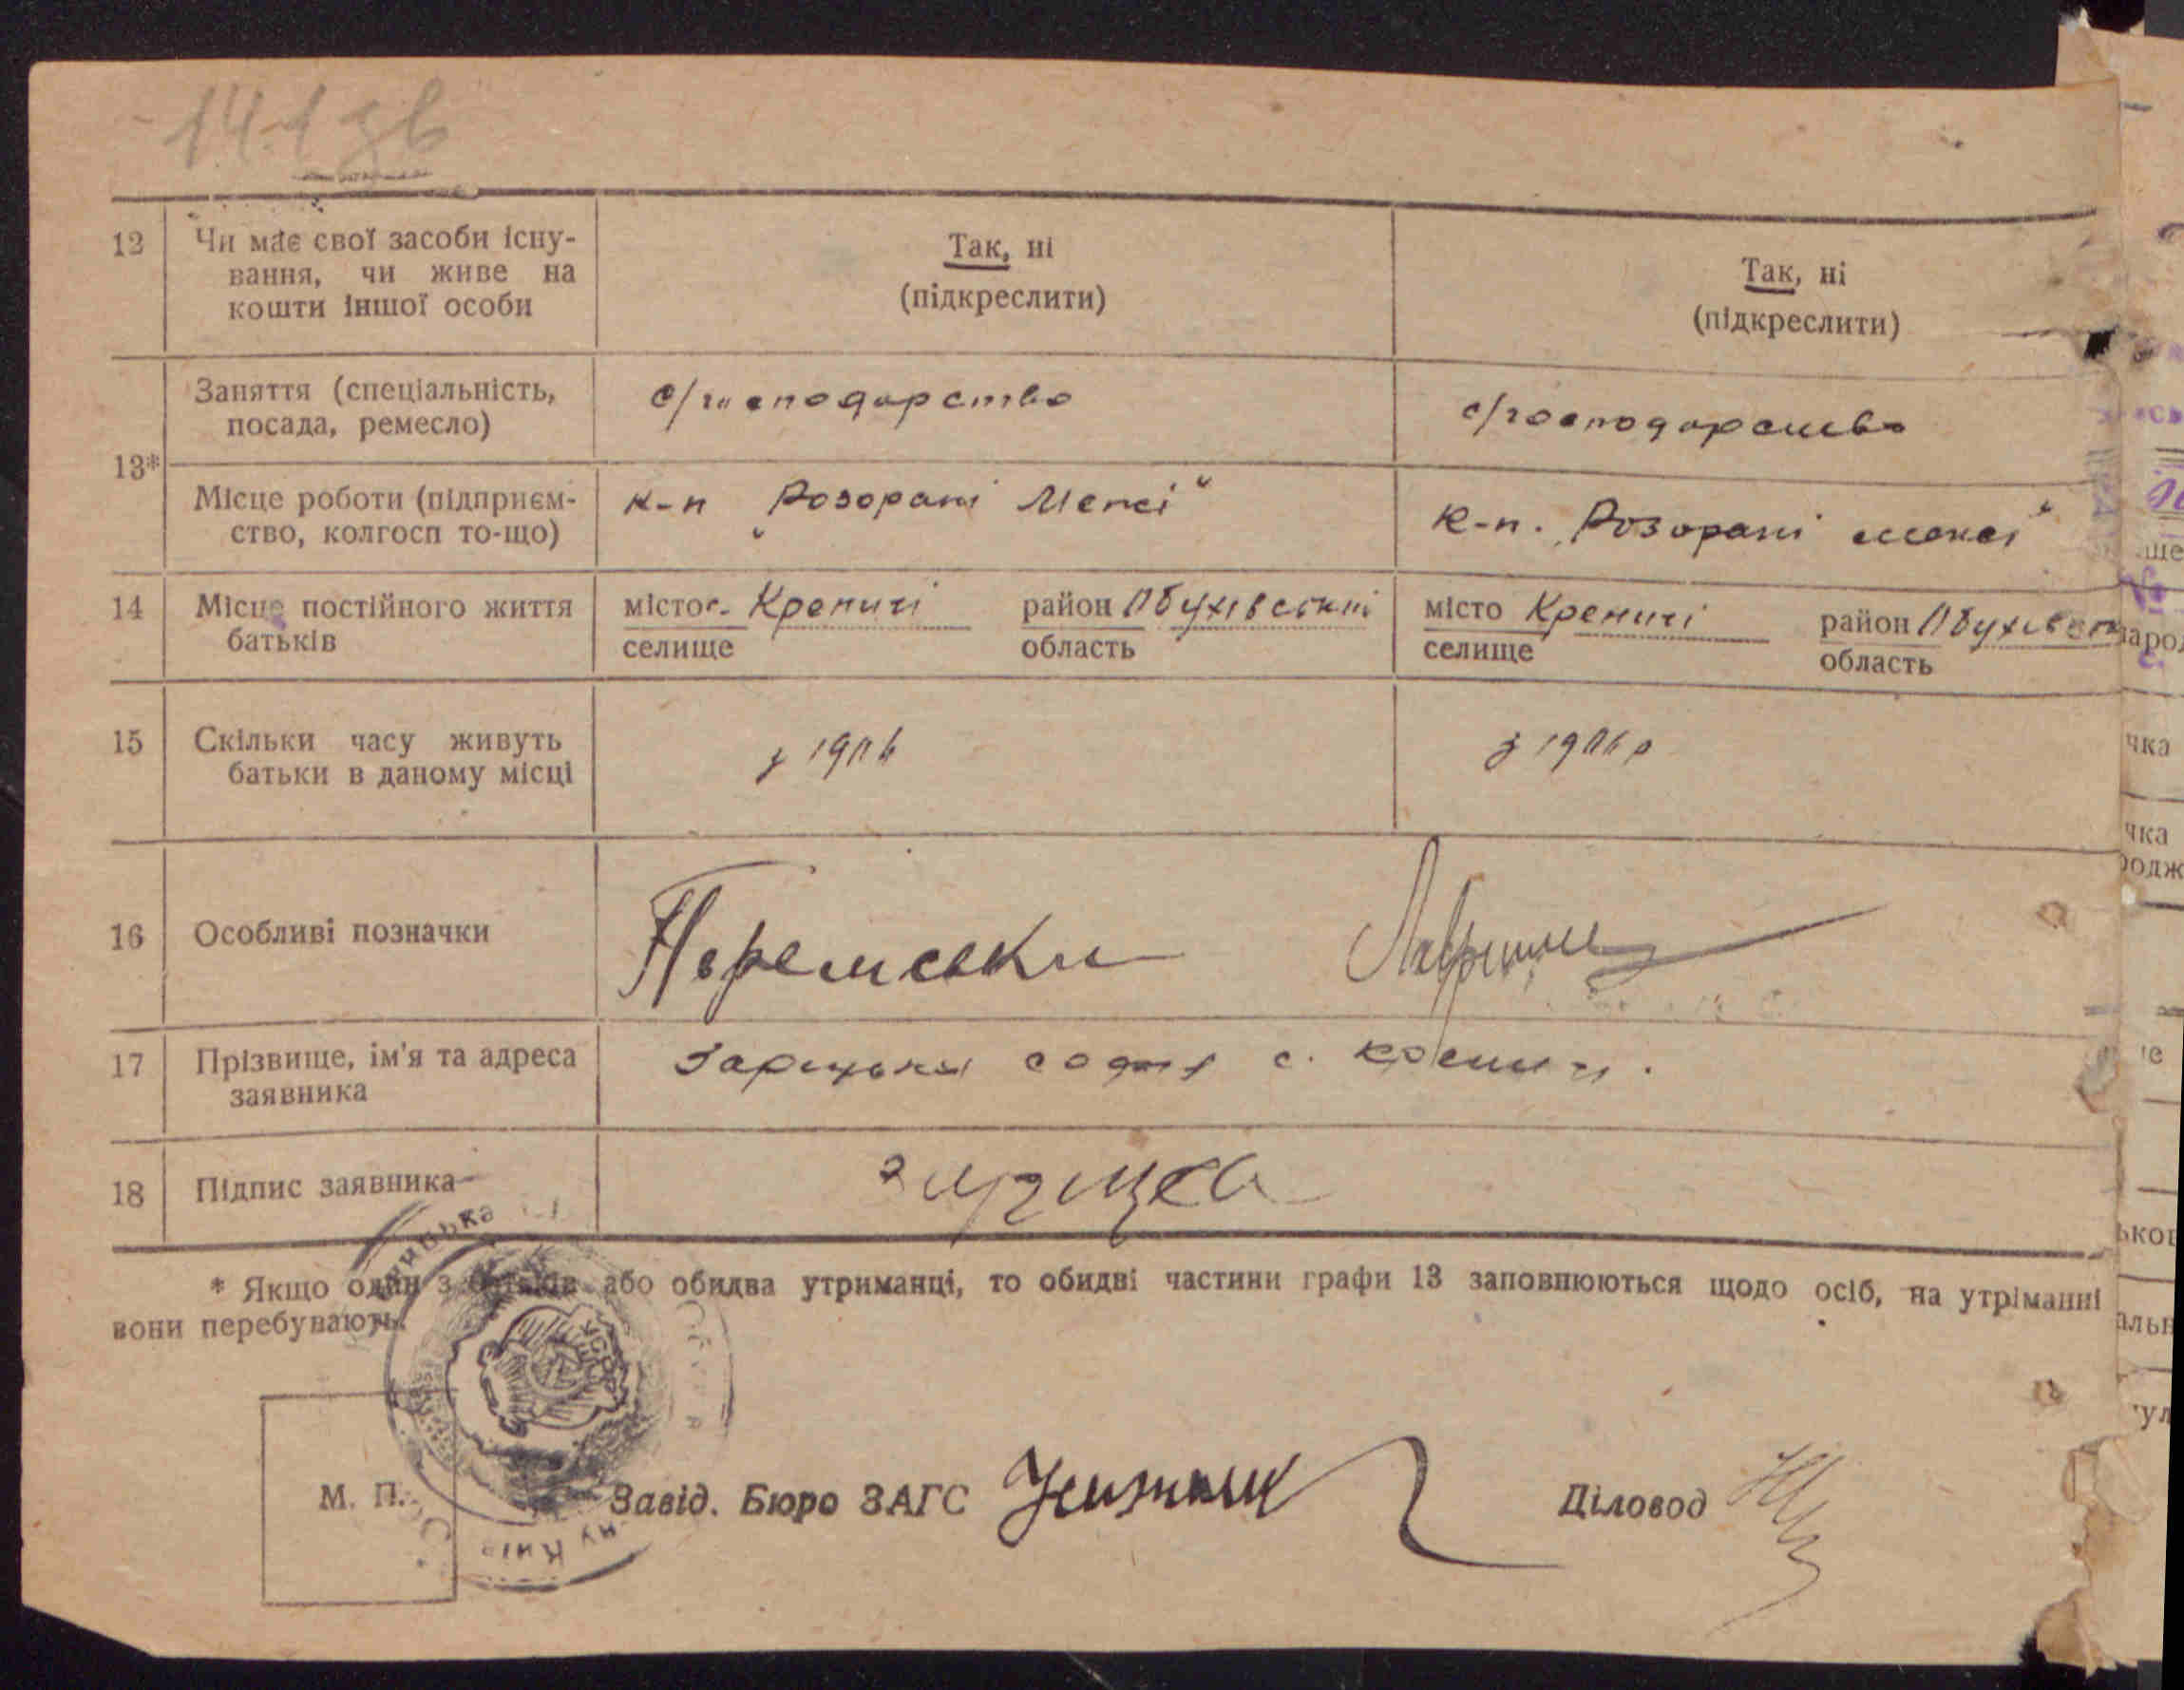 141 зв
12 Чи має свої засоби існу-
вання, чи живе на
кошти іншої особи
Так, ні
(підкреслити)
Так, ні
(підкреслити)
13*
Заняття (спеціальність,
посада, ремесло)
с/господарство
с/господарство
Місце роботи (підприєм-
ство, колгосп то-що)
к-п „Розорані Межі“
к-п. „Розорані межі“
14 Місце постійного життя
батьків
місто с. Креничі район Обухівський
селище область
місто Креничі район Обухівськ
селище область
15 Скільки часу живуть
батьки в даному місці
з 1906
з 1906 р
16 Особливі позначки
17 Прізвище, ім'я та адреса
заявника
Зарицька с. Креничі.
18 Підпис заявника
* Якщо один з батьків або обидва утриманці, то обидві частини графи 13 заповнюються щодо осіб, на утріманні
вони перебувають.
М. П.
Завід. Бюро ЗАГС
Діловод
УСРР